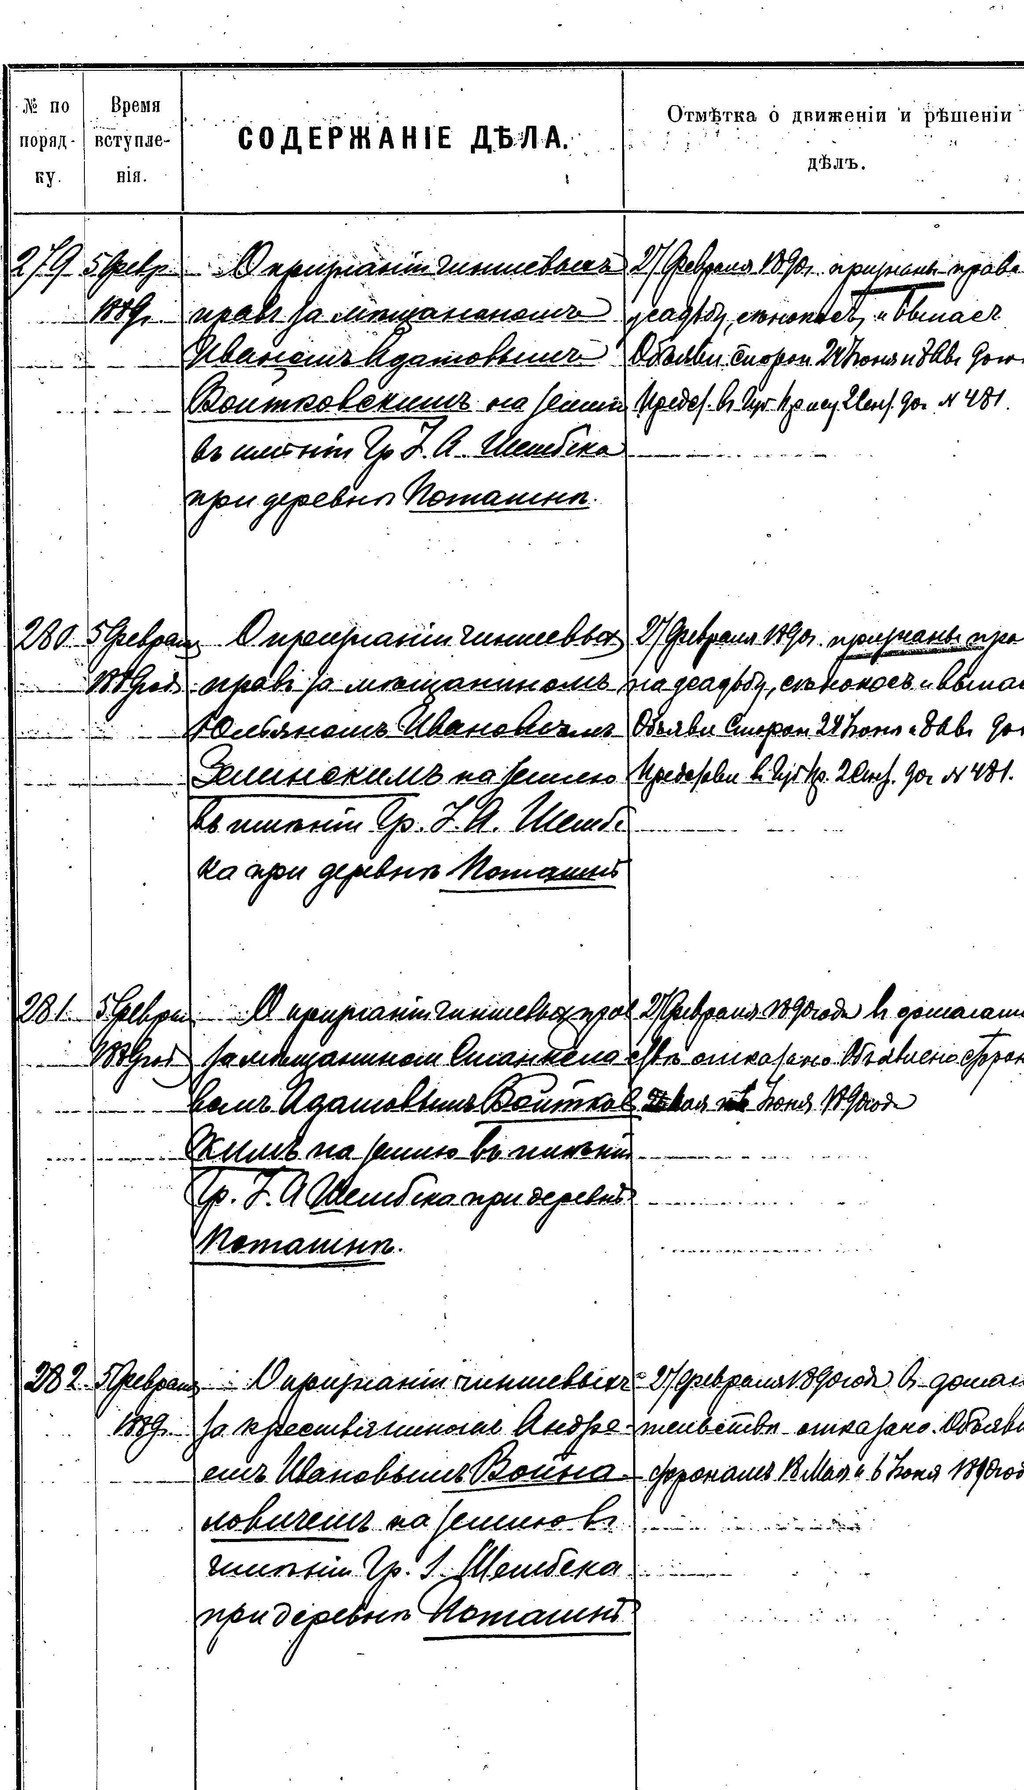 № по поряд- ку.
Время вступле- нія.
СОДЕРЖАНІЕ ДѢЛА.
Отмѣтка о движеніи и рѣшеніи дѣлъ.
279
5 Февр.
1889г.
О признаніи чиншевыхъ
правъ за мѣщаниномъ
Иваномъ Адамовымъ
Войтковскимъ на землю
въ имѣніи Гр. І. А. Шембека
при деревнѣ Поташнѣ.
27 Февраля 1890г. признаны права
усадьбу, сѣнокосъ, и выпасъ
Объявл. сторон 24 Іюня и 8 Ав. 90г.
Предст. въ Губ. Прис. 2 Сент. 90г. № 481.
280
5 Февраля
1889 год.
О признаніи чиншевыхъ
правъ за мѣщаниномъ
Юльяномъ Ивановичемъ
Зелинскимъ на землю
въ имѣніи Гр. І. А. Шембе
ка при деревнѣ Поташнѣ
27 Февраля 1890г. признаны пра
на усадьбу, сѣнокосъ и выпас
Объявл. Сторон 24 Іюня и 8 Ав. 90г
въ Губ. Пр. 2 Сент. 90г. № 481.
281.
5 Февра
1889 год
О признаніи чиншевыхъ прав
за мѣщанином Станисла
вомъ Адамовымъ Войтков
скимъ на землю въ имѣніи
Гр. І. А Шембека при деревнѣ
Поташнѣ.
27 Февраля 1890 года въ домагатель
ствѣ отказано. Объявлено сторон
Іюня 1890 года
282
5 Февраля
1889г.
О признаніи чиншевыхъ
за крестьяниномъ Андре-
емъ Ивановымъ Война
ловичемъ на землю въ
имѣніи Гр. І. Шембека
при деревнѣ Поташнѣ
27 февраля 1890 года въ домага
тельствѣ отказано. Объявл
сторонамъ 18 Мая и 6 Іюня 1890 год